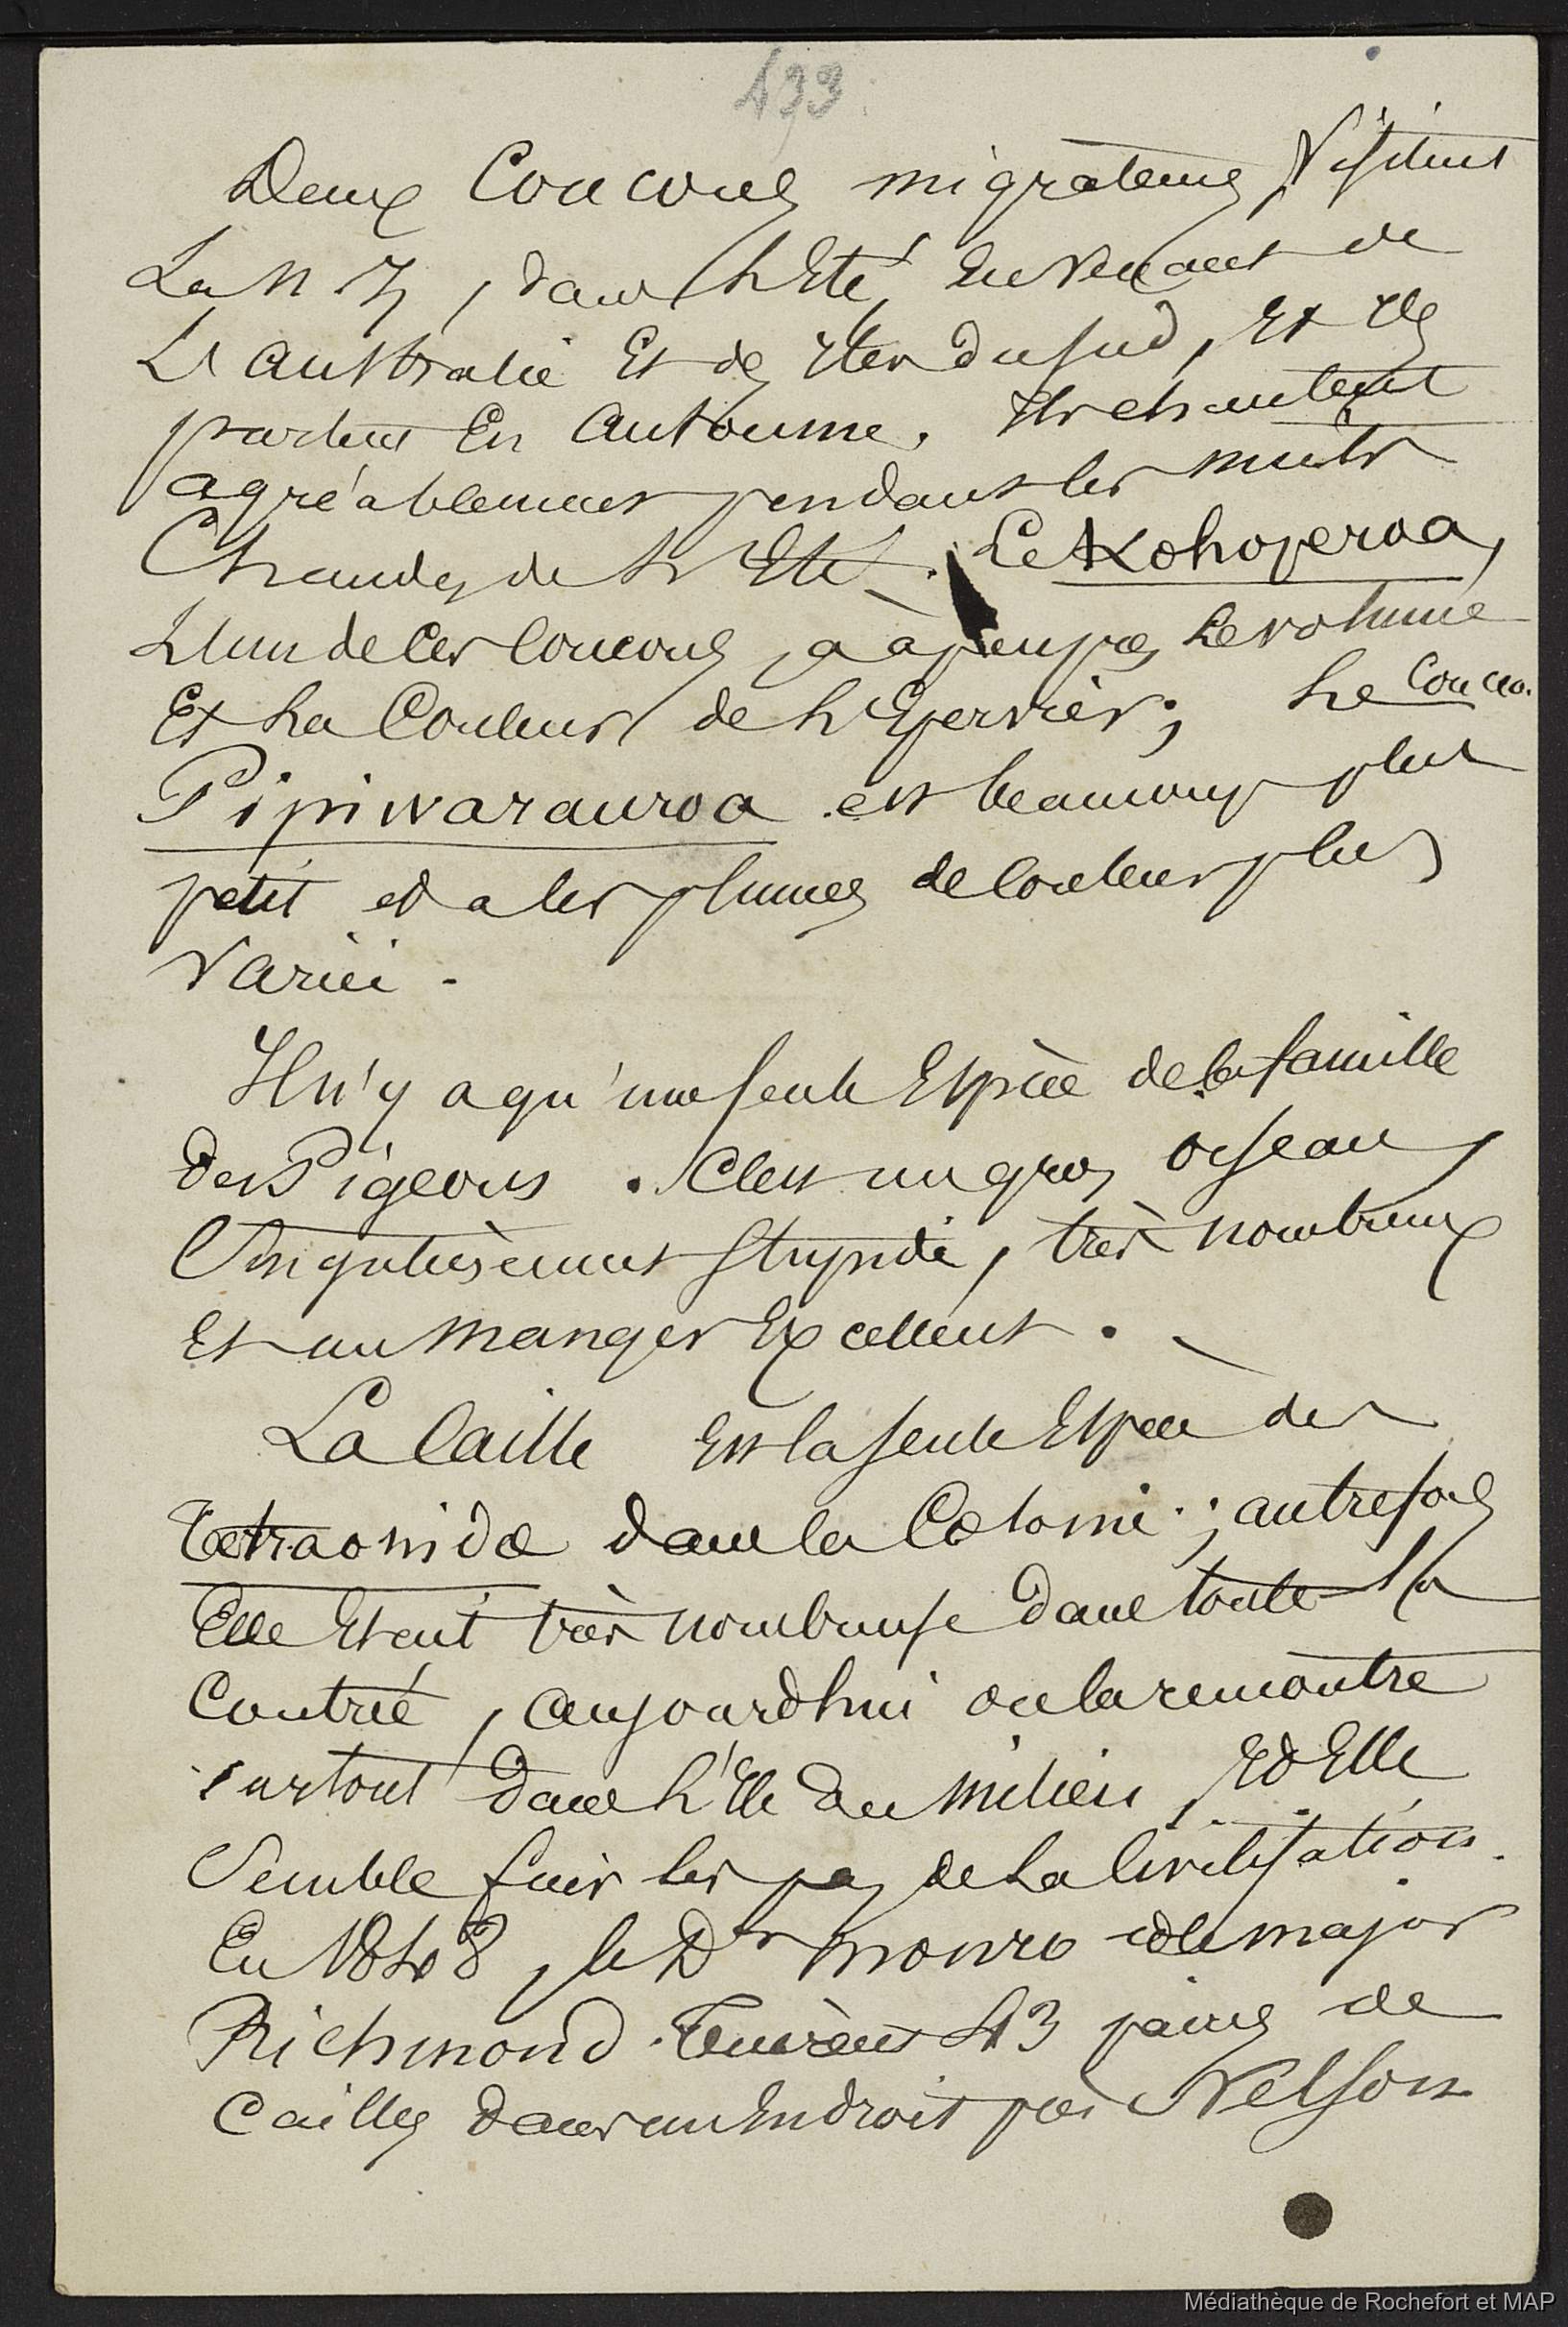 433
Deux Coucous migrateurs, Visitent
La N Z, dans L'Eté, En Venant de
L'australie Et des Iles du sud, Et Ils
partent En Automne. Ils chantent
agréablement pendant les nuits
Chaudes de L'Eté. Le Kohoperoa,
L'un de Ces Coucous, a à peu près Le volume
Et La Couleur de L'Epervier; Le Coucou
Pipiwarauroa est beaucoup plus
petit et a les plumes de Couleur plus
Variée.
Il n'y a qu'une seule Espèce de la famille
Des Pigeons. C'est un gros oiseau,
Singulièrement Stupide, très nombreux
Et un Manger Excellent.
La Caille Est la seule Espèce des
Tetraonidæ dans la Colonie; autrefois
Elle Etait très nombreuse Dans toute la
Contrée, aujourd'hui on la rencontre
surtout Dans L'Ile du Milieu, Et Elle
Semble fuir les pas de La Civilisation.
En 1848, le Dr Monro et le major
Richmond. Tuèrent 43 paires de
Cailles Dans un Endroit près Nelson
Médiathèque de Rochefort et MAP